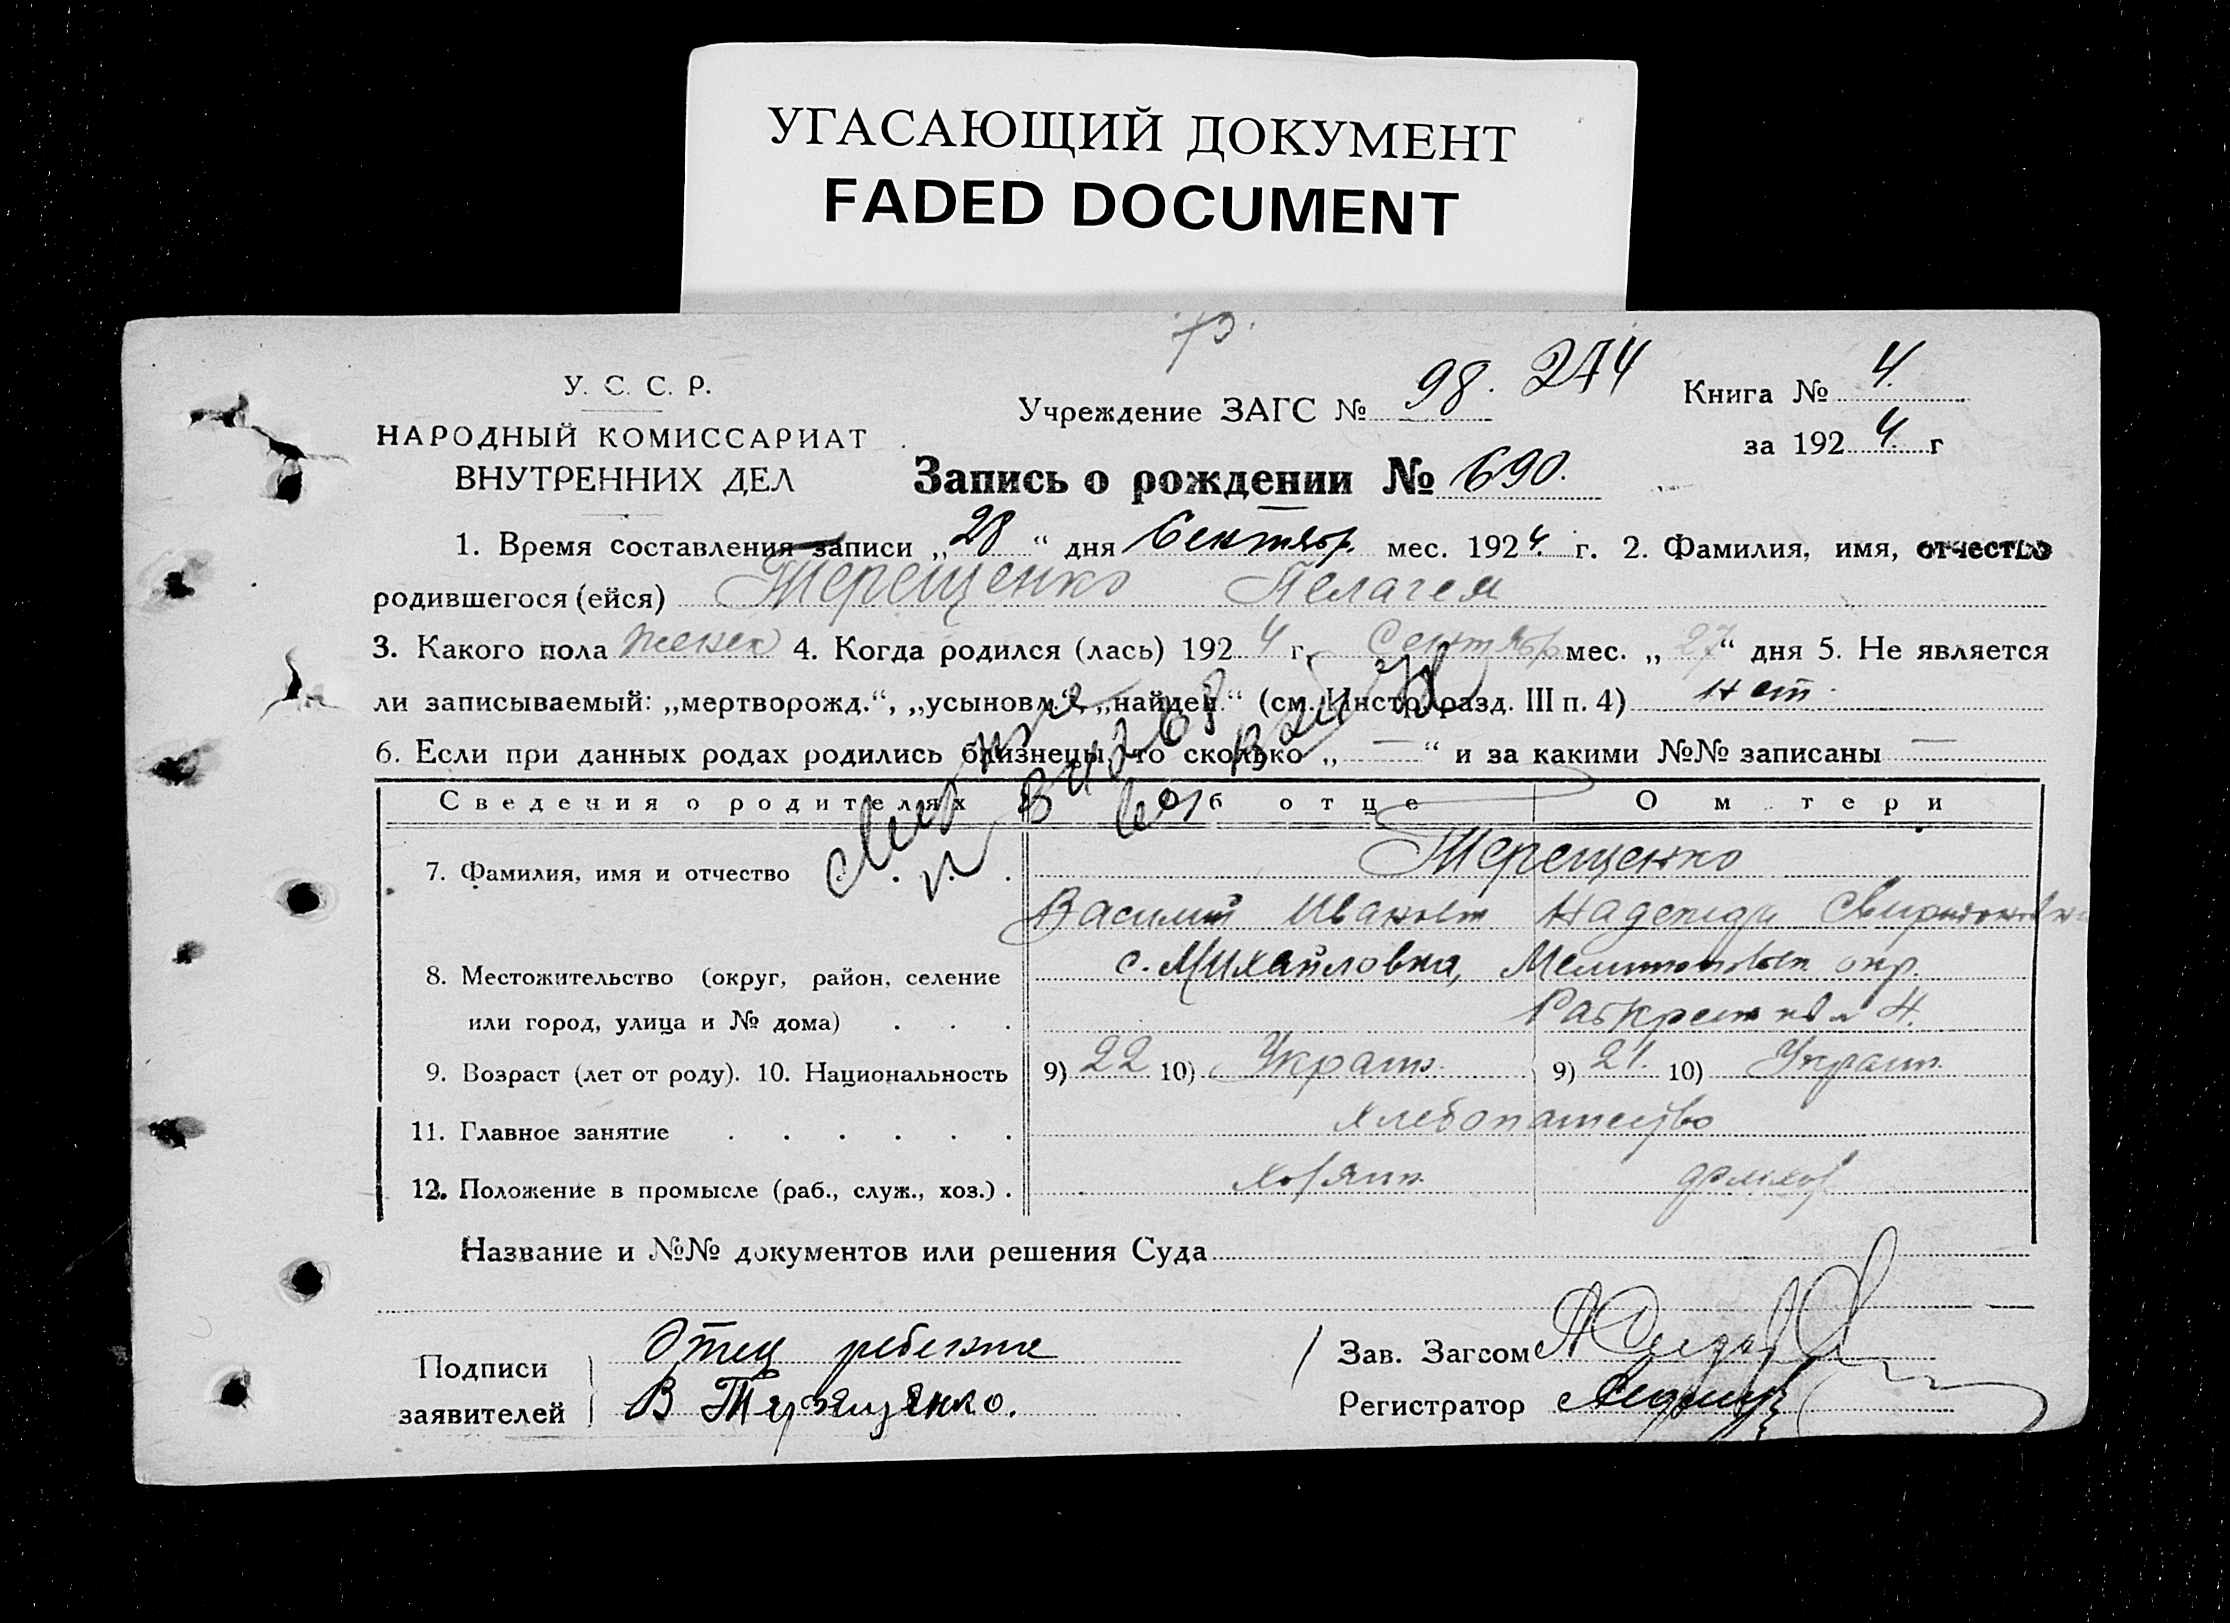 УГАСАЮЩИЙ ДОКУМЕНТ
FADED DOCUMENT
У. С. С. Р.
НАРОДНЫЙ КОМИССАРИАТ
ВНУТРЕННИХ ДЕЛ
Учреждение ЗАГС № 98. 274
Книга № 4.
за 1924 г
Запись о рождении № 690.
1. Время составления записи „28“ дня Сентябр. мес. 1924 г. 2. Фамилия, имя, отчество
родившегося (ейся) Терещенко Пелагея
3. Какого пола женск 4. Когда родился (лась) 1924 г. Сентябр. мес. „27“ дня 5. Не является
ли записываемый: „мертворожд.“, „усыновл.“, „найден.“ (см. Инстр. разд. III п. 4) нет.
6. Если при данных родах родились близнецы, то сколько „—“ и за какими №№ записаны —
Сведения о родителях Об отце О матери
7. Фамилия, имя и отчество . . . Терещенко
Василий Иванов Надежда
8. Местожительство (округ, район, селение с. Михайловка, окр.
или город, улица и № дома) . . .
9. Возраст (лет от роду). 10. Национальность 9) 22 10) Украин. 9) 21. 10) Украин.
11. Главное занятие . . . . . . хлебопашество
12. Положение в промысле (раб., служ., хоз.) . хозяин
Название и №№ документов или решения Суда
Подписи Отец ребенка
заявителей В Терещенко.
Зав. Загсом
Регистратор